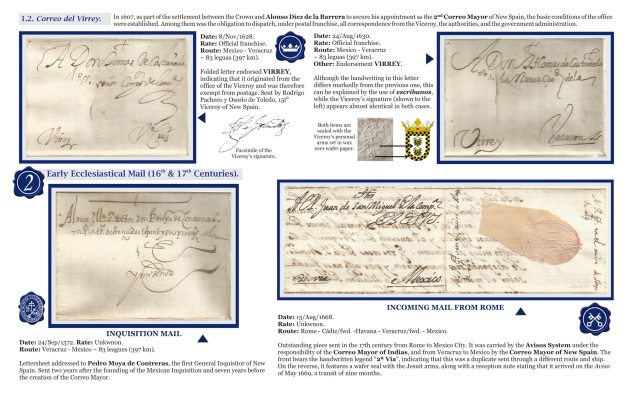 1.2. Correo del Virrey.
In 1607, as part of the settlement between the Crown and Alonso Díez de la Barrera to secure his appointment as the 2nd Correo Mayor of New Spain, the basic conditions of the office
were established. Among them was the obligation to dispatch, under postal franchise, all correspondence from the Viceroy, the authorities, and the government administration.
Date: 8/Nov/1628.
Rate: Official franchise.
Route: Mexico - Veracruz
~ 83 leguas (397 km).
Folded letter endorsed VIRREY,
indicating that it originated from the
office of the Viceroy and was therefore
exempt from postage. Sent by Rodrigo
Pacheco y Osorio de Toledo, 15th
Viceroy of New Spain.
Facsimile of the
Viceroy's signature.
Date: 24/Aug/1630.
Rate: Official franchise.
Route: Mexico - Veracruz
~ 83 leguas (397 km).
Other: Endorsement VIRREY.
Although the handwriting in this letter
differs markedly from the previous one, this
can be explained by the use of escribanos,
while the Viceroy's signature (shown to the
left) appears almost identical in both cases.
Both items are
sealed with the
Viceroy's personal
arms set in wax
over wafer paper.
Virrey
Virrey
Veracruz
2
Early Ecclesiastical Mail (16th & 17th Centuries).
INQUISITION MAIL
Date: 24/Sep/1572. Rate: Unkwnon.
Route: Veracruz - Mexico ~ 83 leguas (397 km).
Lettersheet addressed to Pedro Moya de Contreras, the first General Inquisitor of New
Spain. Sent two years after the founding of the Mexican Inquisition and seven years before
the creation of the Correo Mayor.
Mexico
INCOMING MAIL FROM ROME
Date: 15/Aug/1668.
Rate: Unkwnon.
Route: Rome - Cádiz/fwd. -Havana - Veracruz/fwd. - Mexico.
Outstanding piece sent in the 17th century from Rome to Mexico City. It was carried by the Avisos System under the
responsibility of the Correo Mayor of Indias, and from Veracruz to Mexico by the Correo Mayor of New Spain. The
front bears the handwritten legend "2ª Vía", indicating that this was a duplicate sent through a different route and ship.
On the reverse, it features a wafer seal with the Jesuit arms, along with a reception note stating that it arrived on the Aviso
of May 1669, a transit of nine months.